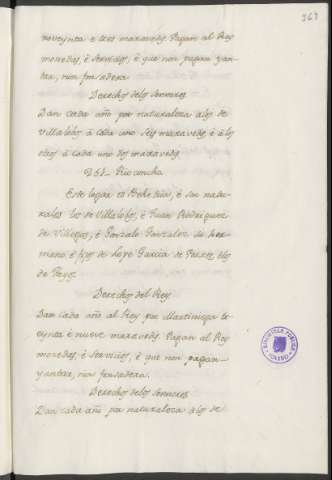 noveynta è tres maravedis. Pagan al Rey
monedas, è servicios, è que non pagan yan-
tar, nin fonsadera.
Derechos delos Sennores
Dan cada año por naturaleza alos de
Villalobos à cada uno seis maravedis, è à los
otros à cada uno dos maravedis
Rioconcha
Este logar es Behetria, è son natu-
rales los de Villalobos, è Juan Rodriguez
de Villegas, è Gonzalo Gonzalez su her-
mano è fijos de Lope Garcia de Porres, è los
de
Derechos del Rey
Dan cada año al Rey por Martiniega tre-
eynta è nueve maravedis. Pagan al Rey
monedas, è servicios, è que non pagan
yantar, nin fonsadera.
Derechos delos Sennores
Dan cada año por naturaleza alos de
BIBLIOTECA PUBLICA
TOLEDO